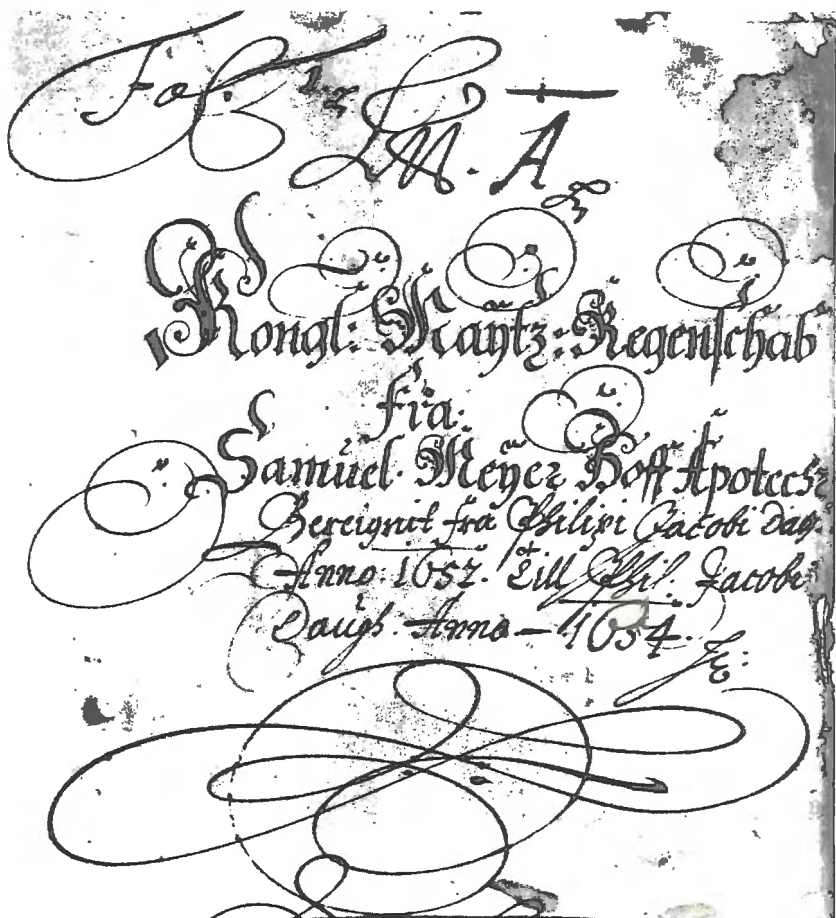 Fol: 1.
LM. A
Kongl: Maÿtz: Regenschab
fra.
Samuel. Meÿer Hoff Apotech
Bereignit fra Philipi Jacobi dag.
Anno: 1652. Till Phil: Jacobi
Daugh. Anno – 1654.